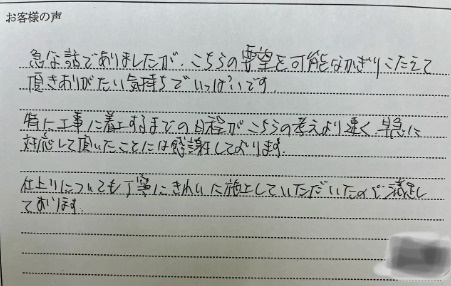 お客様の声
急な話でありましたが、こちらの要望を可能なかぎりこたえて
頂きありがたい気持ちでいっぱいです。
特に工事に着工するまでの日程がこちらの考えより速く、早急に
対応して頂いたことには感謝しております。
仕上りについても丁寧にきれいに施工していただいたので満足し
ております。